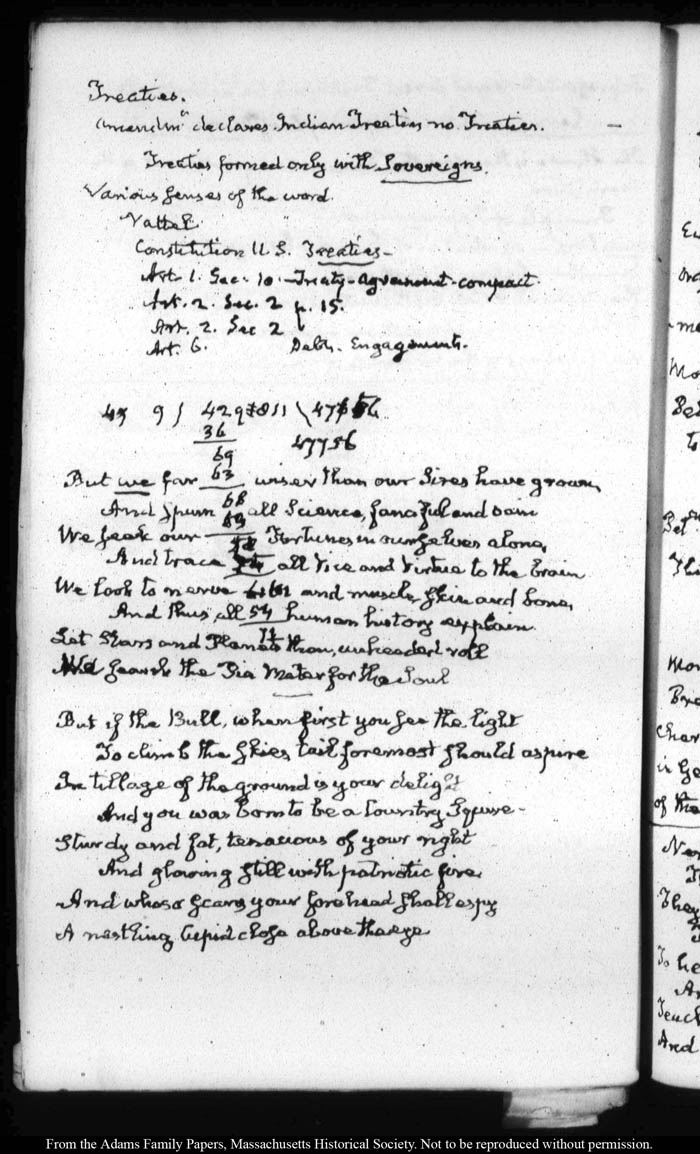 Treaties.
Amendmt declares Indian Treaties no Treaties. —
Treaties formed only with Sovereigns.
Various senses of the word.
Vattel.
Constitution U.S. Treaties—
Art. 1. Sec. 10—Treaty-agreement-compact.
Art. 2. Sec. 2 p. 15.
Art. 2. Sec 2
Art. 6. Debts. Engagements.
9 ) 429
36
47756
69
But we far 63 wiser than our Sires have grown,
68
And spurn all Science, fanciful and vain
63
We seek our Fortunes in ourselves alone,
And trace 54 all Vice and Virtue to the brain
We look to nerve and muscle, skin and bone,
And thus all 54 human history explain
Let Stars and Planets then, unheeded roll
We search the Pia Mater for the Soul
But if the Bull, when first you see the light
To climb the skies, tail foremost should aspire
In tillage of the ground is your delight
And you was born to be a Country Squire—
Sturdy and fat, tenacious of your right
And glowing still with patriotic fire.
And whoso scans your forehead shall espy
A nestling Cupid close above the eye.
From the Adams Family Papers, Massachusetts Historical Society. Not to be reproduced without permission.